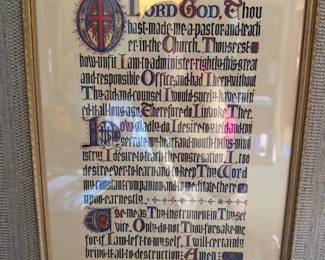 O LORD GOD, Thou
hast made me a pastor and teach
er in the Church. Thou seest
how unfit I am to administer rightly this great
and responsible Office and had I been without
Thy aid and counsel I would surely have ruin
ed it all long ago. Therefore do I invoke Thee.
How gladly do I desire to yield and con
secrate my heart and mouth to this min
istry! I desire to teach the congregation. I, too
desire ever to learn and to keep Thy Word
my constant companion and to meditate there
upon earnestly.
Use me as Thy instrument in Thy ser
vice. Only do not Thou forsake me
for if I am left to myself, I will certainly
bring it all to destruction. Amen